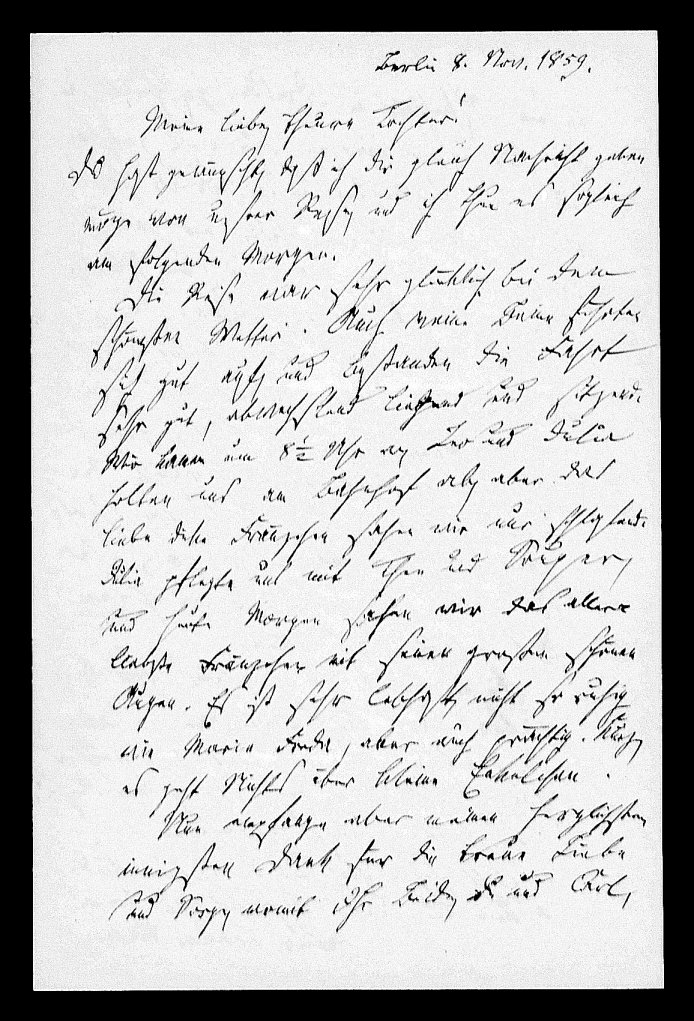 Berlin 8. Nov. 1859.
Meine liebe theure Tochter!
Du hast gewünscht daß ich Dir gleich Nachricht geben
möge von unsrer Reise und ich thue es sogleich
am folgenden Morgen.
Die Reise war sehr glücklich bei dem
schönsten Wetter. Auch meine Beine hielten
sich gut auf, und bestanden die Fahrt
sehr gut, abwechselnd liegend und sitzend.
Wir kamen um 8½ Uhr an Leo und Julia
holten uns am Bahnhof ab, aber das
liebe dicke Fränzchen sahen wir nur schlafend.
Julia pflegte uns mit Thee und Souper,
und heute Morgen sahen wir das aller
liebste Fränzchen mit seinen großen schönen
Augen. Es ist sehr lebhaft, nicht so ruhig
wie Maria Frida, aber auch prächtig. Kurz,
es geht Nichts über kleine Enkelchen.
Nun empfange aber meinen herzlichsten
innigsten Dank für die treue Liebe
und Sorge, womit Ihr Beide, Du und Carl,